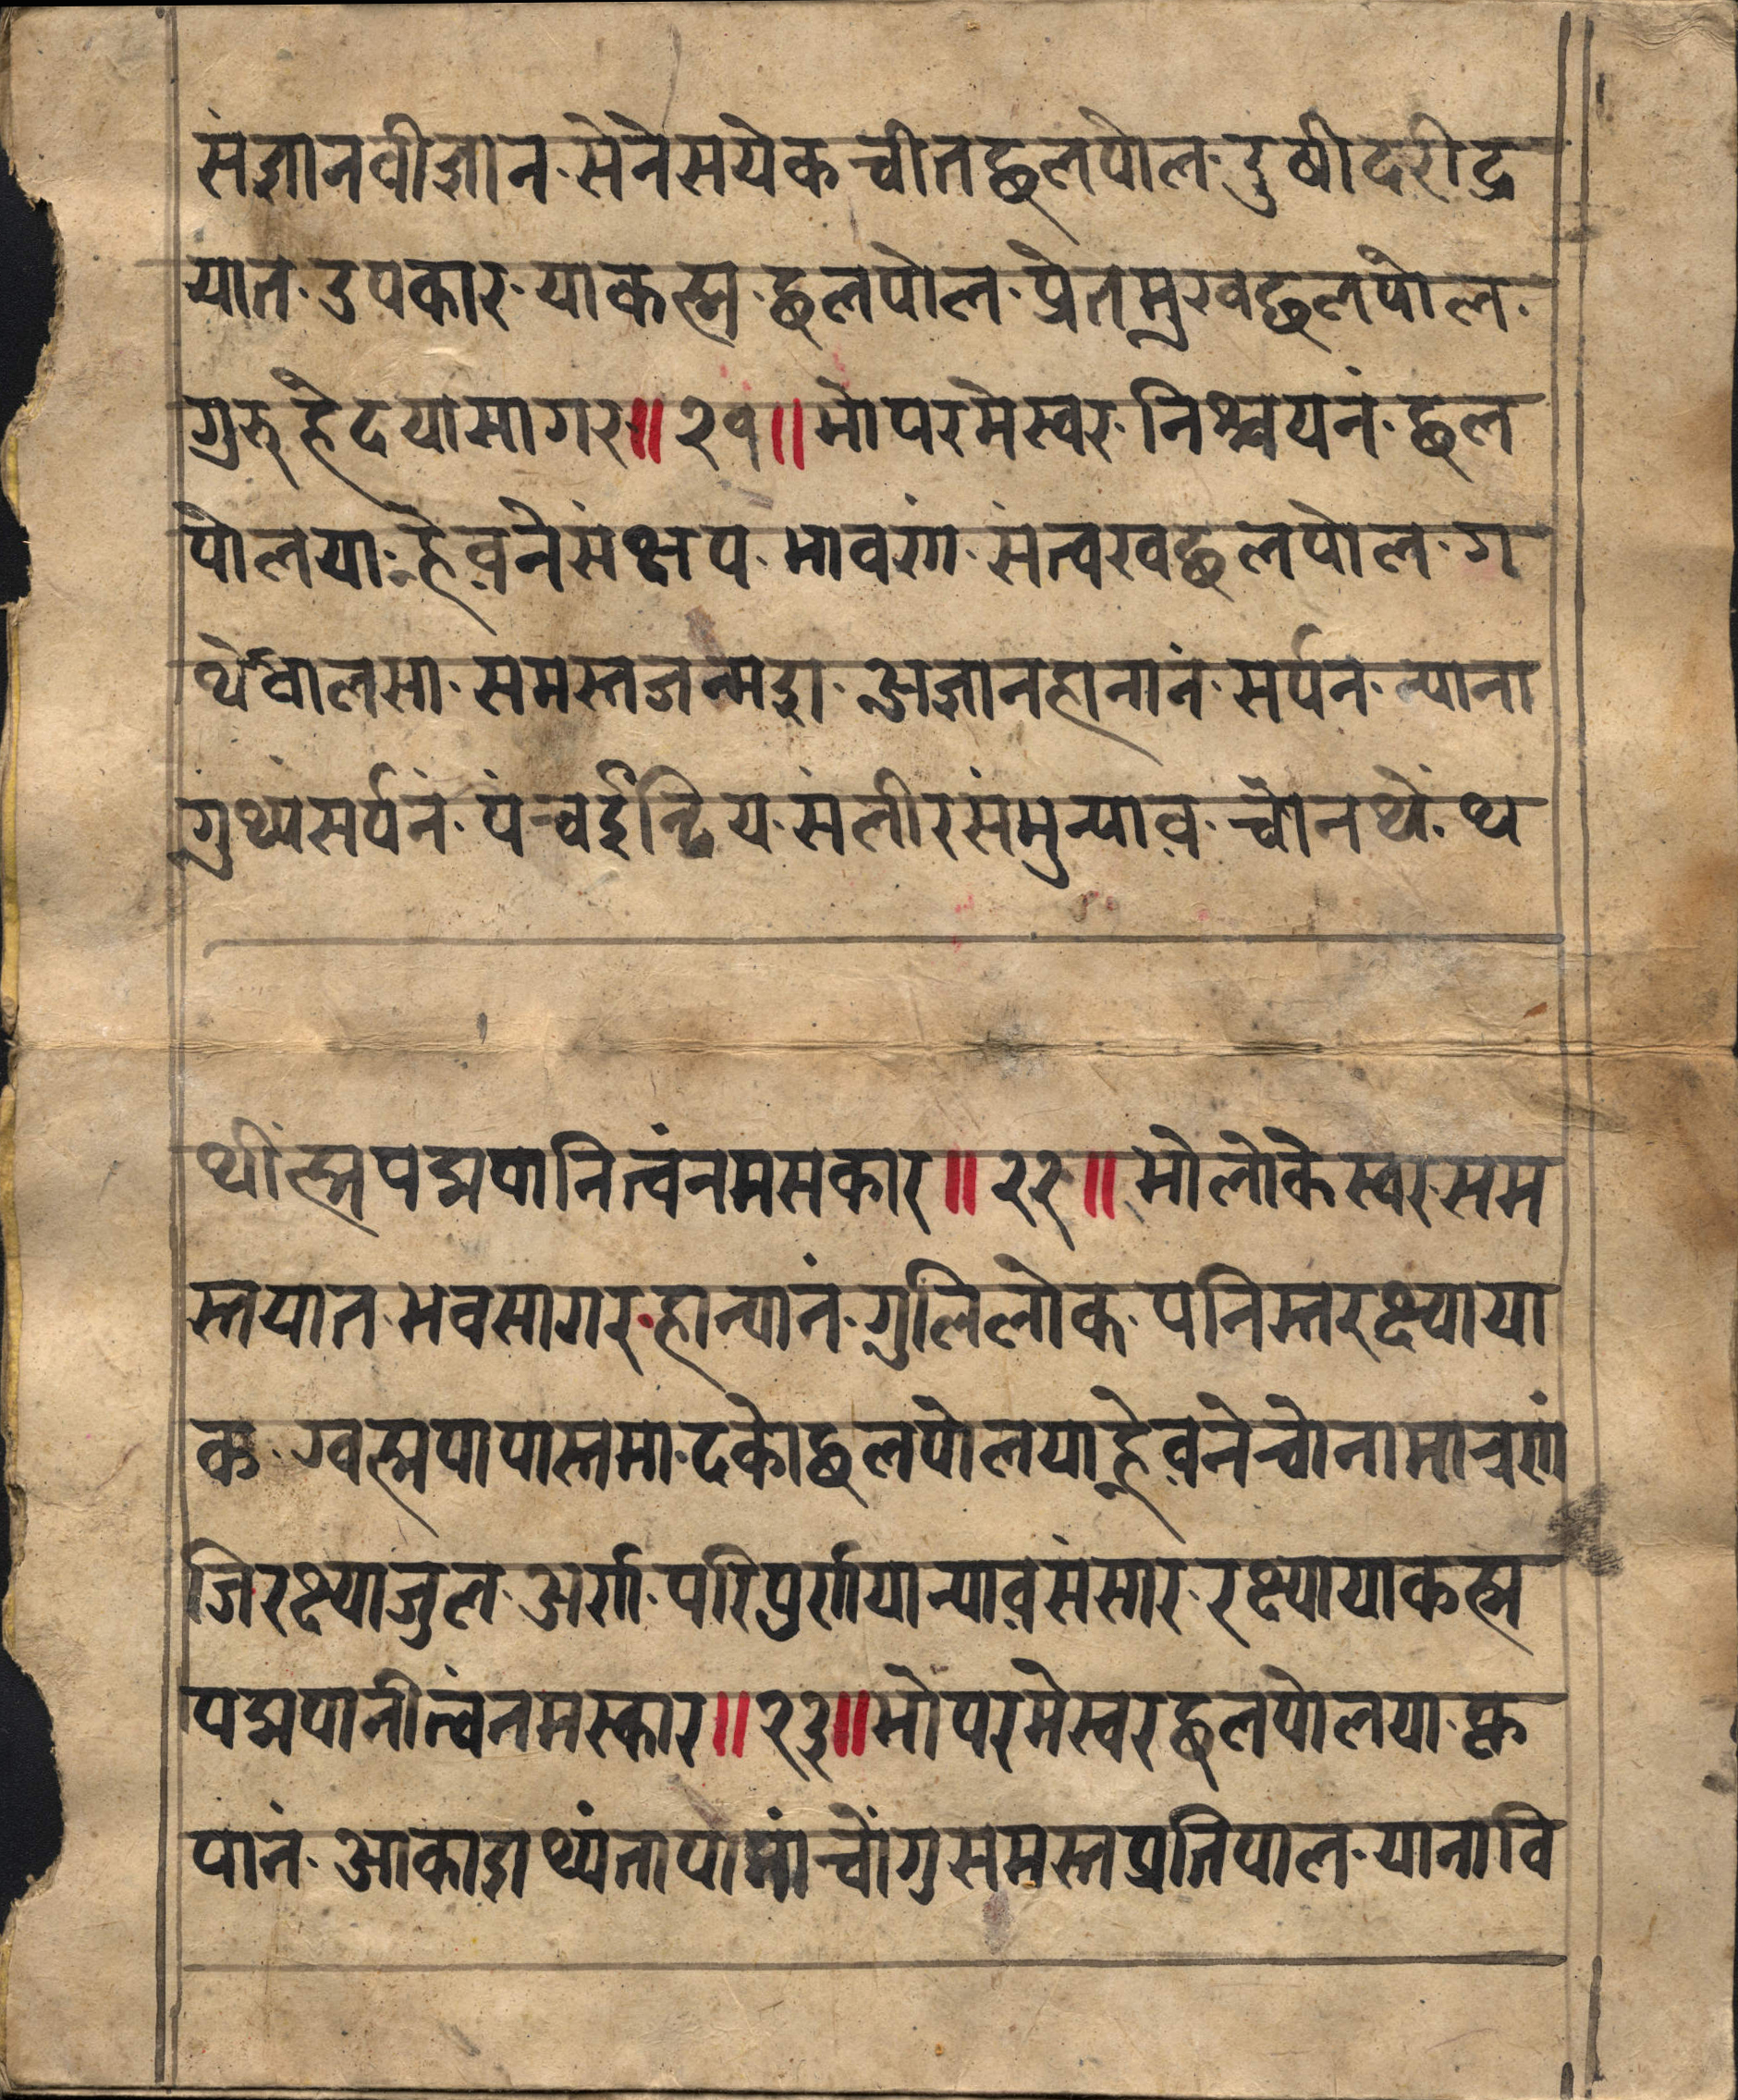 संज्ञानवीज्ञान·सेनेसयेकचीतछलपोल·दुषीदरीद्र
यात·उपकार·याकह्म·छलपोल·प्रेतमुखछलपोल·
गुरुहेदयासागर॥२१॥भोपरमेस्वर·निश्चयनं·छल
पोलया·ह्रेवनेसंक्षप·भावरंग·संत्वखछलपोल·ग
थेधालसा·समस्तजन्मदा·अज्ञानहानानं·सर्पनं·न्याना
गुथ्यंसर्पनं·पंन्चईन्द्रिय·सलीरसंमुन्याव·चोनथें·थ
थींह्मपद्मपानित्वंनमसकार॥२२॥भोलोकेस्वर·सम
स्तयात·भवसागर·हान्यानं·गुलिलोक·पनिस्तरक्ष्याया
क·ग्वह्मपापास्तमा·दकोछलपोलयाह्रेवनेचोनामाचगां
जिरक्ष्याजुल·अर्गा·परिपुर्गायान्यावसंसार·रक्ष्यायाकह्म
पद्मपानीत्वंनमस्कार॥२३॥भोपरमेस्वरछलपोलया·कृ
पानं·आकाशथ्यंनापोसांचोंगुसमस्तप्रतिपाल·यानावि